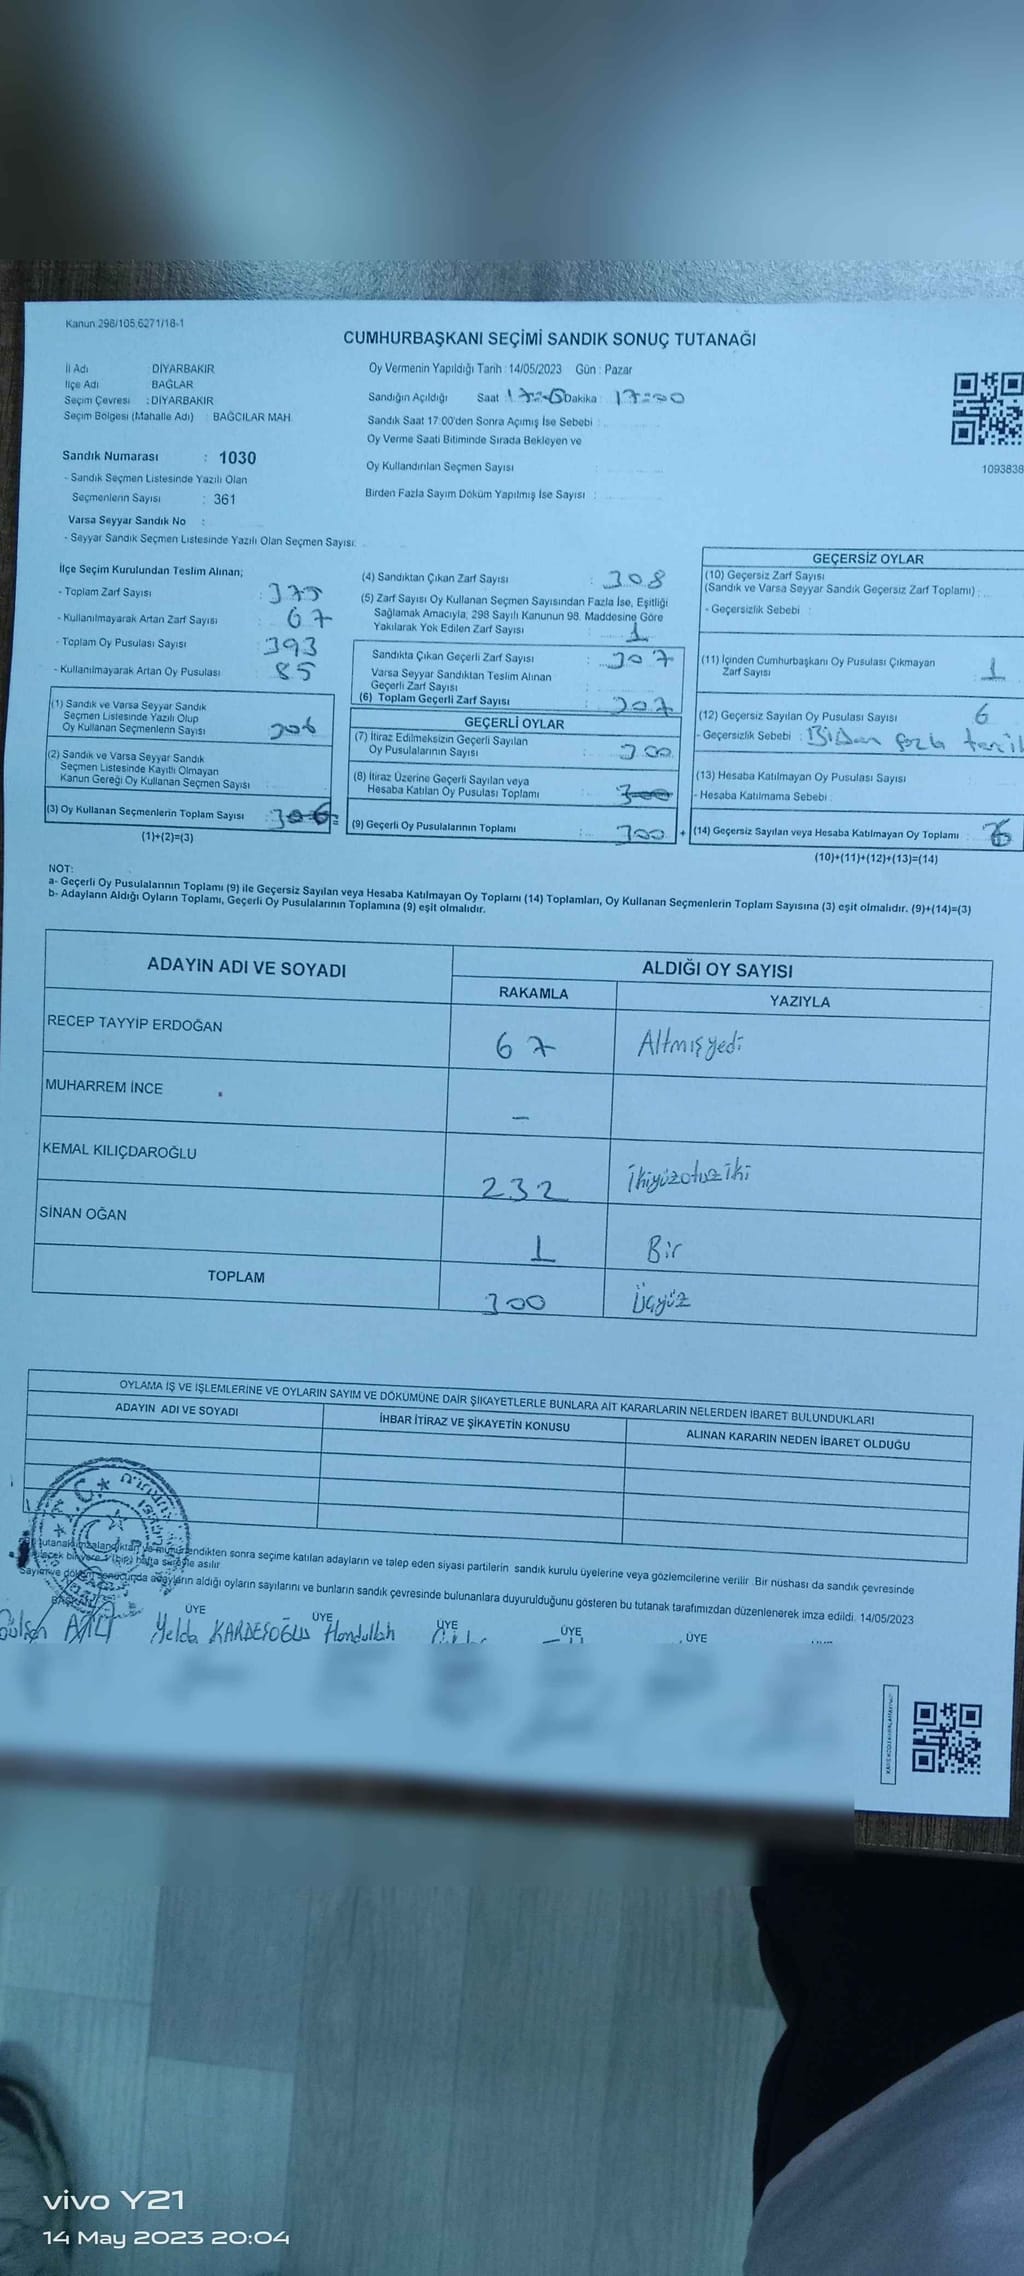 Kanun 298/105,6271/18-1
CUMHURBAŞKANI SEÇİMİ SANDIK SONUÇ TUTANAĞI
İl Adı : DİYARBAKIR
İlçe Adı : BAĞLAR
Seçim Çevresi : DİYARBAKIR
Seçim Bölgesi (Mahalle Adı) : BAĞCILAR MAH.
Sandık Numarası : 1030
- Sandık Seçmen Listesinde Yazılı Olan
Seçmenlerin Sayısı : 361
Varsa Seyyar Sandık No :
- Seyyar Sandık Seçmen Listesinde Yazılı Olan Seçmen Sayısı:
Oy Vermenin Yapıldığı Tarih : 14/05/2023 Gün : Pazar
Sandığın Açıldığı Saat Dakika : 17:00
Sandık Saat 17:00'den Sonra Açımış İse Sebebi :
Oy Verme Saati Bitiminde Sırada Bekleyen ve
Oy Kullandırılan Seçmen Sayısı :
Birden Fazla Sayım Döküm Yapılmış İse Sayısı :
1093838
İlçe Seçim Kurulundan Teslim Alınan;
- Toplam Zarf Sayısı : 375
- Kullanılmayarak Artan Zarf Sayısı : 67
- Toplam Oy Pusulası Sayısı : 393
- Kullanılmayarak Artan Oy Pusulası : 85
(1) Sandık ve Varsa Seyyar Sandık
Seçmen Listesinde Yazılı Olup
Oy Kullanan Seçmenlerin Sayısı : 306
(2) Sandık ve Varsa Seyyar Sandık
Seçmen Listesinde Kayıtlı Olmayan
Kanun Gereği Oy Kullanan Seçmen Sayısı :
(3) Oy Kullanan Seçmenlerin Toplam Sayısı : 306 =
(1)+(2)=(3)
(4) Sandıktan Çıkan Zarf Sayısı : 308
(5) Zarf Sayısı Oy Kullanan Seçmen Sayısından Fazla İse, Eşitliği
Sağlamak Amacıyla, 298 Sayılı Kanunun 98. Maddesine Göre
Yakılarak Yok Edilen Zarf Sayısı : 1
Sandıkta Çıkan Geçerli Zarf Sayısı : 307
Varsa Seyyar Sandıktan Teslim Alınan
Geçerli Zarf Sayısı :
(6) Toplam Geçerli Zarf Sayısı : 307
GEÇERLİ OYLAR
(7) İtiraz Edilmeksizin Geçerli Sayılan
Oy Pusulalarının Sayısı : 300
(8) İtiraz Üzerine Geçerli Sayılan veya
Hesaba Katılan Oy Pusulası Toplamı : 300
(9) Geçerli Oy Pusulalarının Toplamı : 300 +
GEÇERSİZ OYLAR
(10) Geçersiz Zarf Sayısı
(Sandık ve Varsa Seyyar Sandık Geçersiz Zarf Toplamı) :
- Geçersizlik Sebebi :
(11) İçinden Cumhurbaşkanı Oy Pusulası Çıkmayan
Zarf Sayısı : 1
(12) Geçersiz Sayılan Oy Pusulası Sayısı : 6
- Geçersizlik Sebebi : fazla
(13) Hesaba Katılmayan Oy Pusulası Sayısı :
- Hesaba Katılmama Sebebi :
(14) Geçersiz Sayılan veya Hesaba Katılmayan Oy Toplamı :
(10)+(11)+(12)+(13)=(14)
NOT:
a- Geçerli Oy Pusulalarının Toplamı (9) ile Geçersiz Sayılan veya Hesaba Katılmayan Oy Toplamı (14) Toplamları, Oy Kullanan Seçmenlerin Toplam Sayısına (3) eşit olmalıdır. (9)+(14)=(3)
b- Adayların Aldığı Oyların Toplamı, Geçerli Oy Pusulalarının Toplamına (9) eşit olmalıdır.
ADAYIN ADI VE SOYADI
ALDIĞI OY SAYISI
RAKAMLA YAZIYLA
RECEP TAYYİP ERDOĞAN 67 Altmışyedi
MUHARREM İNCE –
KEMAL KILIÇDAROĞLU 232 İkiyüzotuziki
SİNAN OĞAN 1 Bir
TOPLAM 300 Üçyüz
OYLAMA İŞ VE İŞLEMLERİNE VE OYLARIN SAYIM VE DÖKÜMÜNE DAİR ŞİKAYETLERLE BUNLARA AİT KARARLARIN NELERDEN İBARET BULUNDUKLARI
ADAYIN ADI VE SOYADI İHBAR İTİRAZ VE ŞİKAYETİN KONUSU ALINAN KARARIN NEDEN İBARET OLDUĞU
sonra seçime katılan adayların ve talep eden siyasi partilerin sandık kurulu üyelerine veya gözlemcilerine verilir. Bir nüshası da sandık çevresinde
(bir) hafta süreyle asılır
adayların aldığı oyların sayılarını ve bunların sandık çevresinde bulunanlara duyurulduğunu gösteren bu tutanak tarafımızdan düzenlenerek imza edildi. 14/05/2023
ÜYE ÜYE ÜYE ÜYE ÜYE
Gülşen Yelda KARDEŞOĞLU Hamdullah
vivo Y21
14 May 2023 20:04